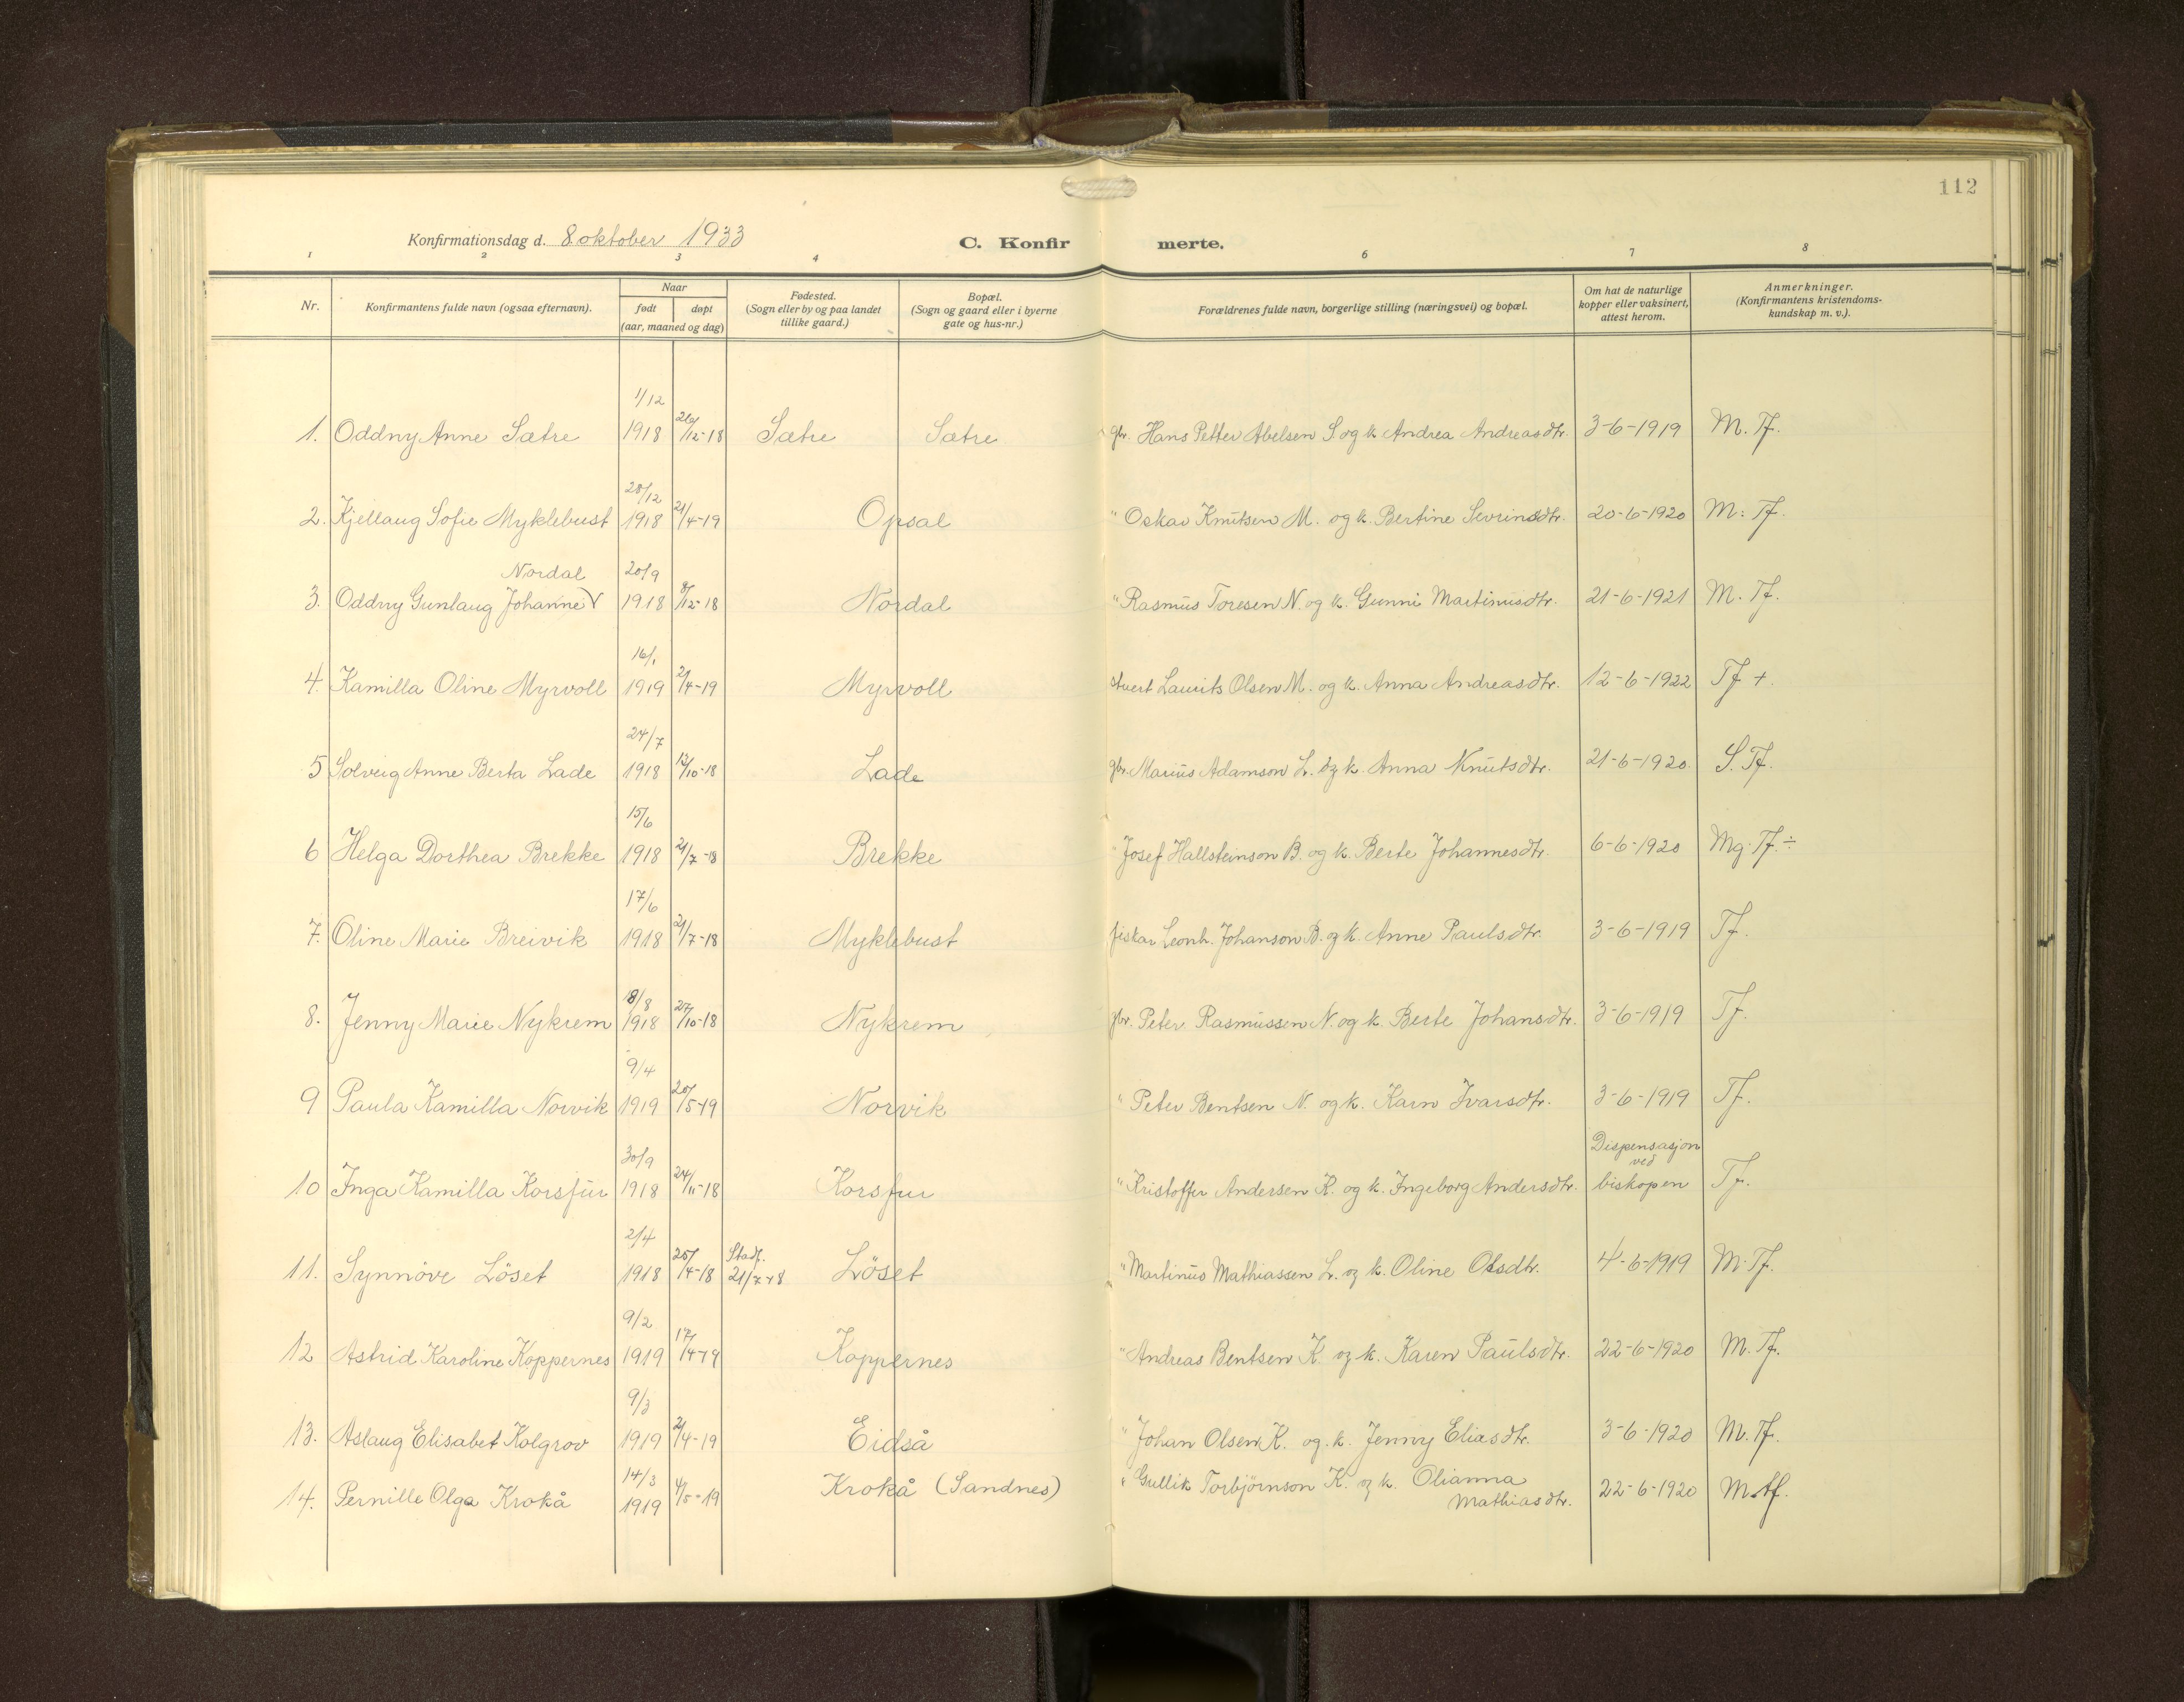 112
Konfirmationsdag d. 8 oktober 1933
C. Konfirmerte.
1 2 3 4 6 7 8
Nr. Konfirmantens fulde navn (ogsaa efternavn). Naar født døpt (aar, maaned og dag) Fødested. (Sogn eller by og paa landet tillike gaard.) Bopæl. (Sogn og gaard eller i byerne gate og hus-nr.) Forældrenes fulde navn, borgerlige stilling (næringsvei) og bopæl. Om hat de naturlige kopper eller vaksinert, attest herom. Anmerkninger. (Konfirmantens kristendoms-kundskap m. v.).
1. Oddny Anne Sætre 1/12 1918 26/12-18 Sætre Sætre gbr. Hans Petter Abelsen S og k. Andrea Andreasdtr. 3-6-1919 M. Tf.
2. Kjellaug Sofie Myklebust 28/12 1918 21/4-19 Opsal " Oskar Knutsen M. og k. Bertine Sevrinsdtr. 20-6-1920 M: Tf.
3. Oddny Gunlaug Johanne V Nordal 20/9 1918 8/12-18 Nordal " Rasmus Toresen N. og k. Gunni Martinusdtr. 21-6-1921 M. Tf.
4. Kamilla Oline Myrvoll 16/1 1919 21/4-19 Myrvoll Laurits Olsen M. og k. Anna Andreasdtr. 12-6-1922 Tf +.
5 Solveig Anne Berta Lade 24/7 1918 /10-18 Lade gbr. Marius Adamson L. og k. Anna Knutsdtr. 21-6-1920 S. Tf.
6 Helga Dorthea Brekke 15/6 1918 21/7-18 Brekke " Josef Hallsteinson B. og k. Berte Johannesdtr. 6-6-1920 Mg. Tf. ÷
7. Oline Marie Breivik 17/6 1918 21/7-18 Myklebust fiskar Leonh. Johanson B. og k. Anne Paulsdtr. 3-6-1919 Tf.
8. Jenny Marie Nykrem 18/8 1918 27/10-18 Nykrem gbr. Peter Rasmussen N. og k. Berte Johansdtr. 3-6-1919 Tf.
9 Paula Kamilla Norvik 9/4 1919 20/5-19 Norvik " Peter Bentsen N. og k. Karn Ivarsdtr. 3-6-1919 Tf.
10 Inga Kamilla Korsfur 30/9 1918 24/11-18 Korsfur " Kristoffer Andersen K. og k. Ingeborg Andersdtr. Dispensasjon ved biskopen Tf.
11. Synnöve Löset 2/4 1918 25/4-18 Stadf. 21/7-18 Löset " Martinus Mathiassen L. og k. Oline Olsdtr. 4-6-1919 M. Tf.
12 Astrid Karoline Koppernes 9/2 1919 17/4-19 Koppernes " Andreas Bentsen K. og k. Karen Paulsdtr. 22-6-1920 M. Tf.
13. Aslaug Elisabet Kolgrov 9/3 1919 21/4-19 Eidså " Johan Olsen K. og. k. Jenny Eliasdtr. 3-6-1920 M. Tf.
14. Pernille Olga Krokå 14/3 1919 4/5-19 Krokå (Sandnes) " Gullik Torbjørnson K. og k. Olianna Mathiasdtr. 22-6-1920 M. Tf.